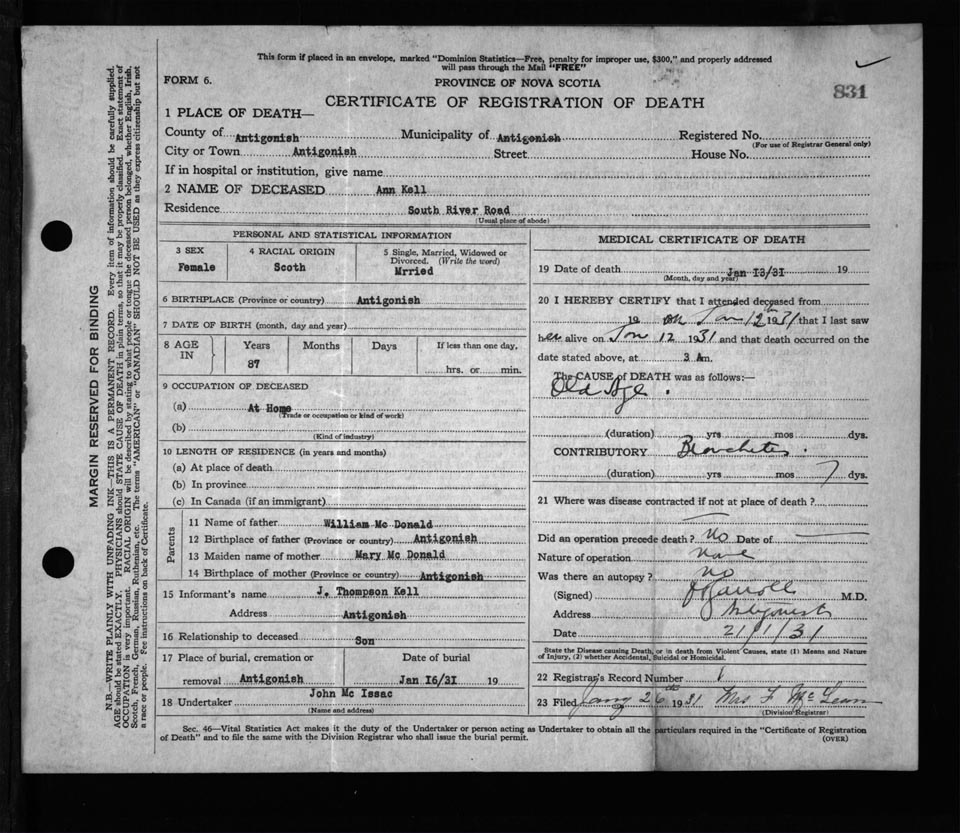 This form if placed in an envelope, marked "Dominion Statistics—Free, penalty for improper use, $300," and properly addressed
will pass through the Mail "FREE"
FORM 6.
PROVINCE OF NOVA SCOTIA
831
CERTIFICATE OF REGISTRATION OF DEATH
1 PLACE OF DEATH—
County of Antigonish Municipality of Antigonish Registered No.
(For use of Registrar General only)
City or Town Antigonish Street House No.
If in hospital or institution, give name
2 NAME OF DECEASED Ann Kell
Residence South River Road
(Usual place of abode)
PERSONAL AND STATISTICAL INFORMATION
3 SEX
Female
4 RACIAL ORIGIN
Scoth
5 Single, Married, Widowed or
Divorced. (Write the word)
Mrried
6 BIRTHPLACE (Province or country) Antigonish
7 DATE OF BIRTH (month, day and year)
8 AGE IN
Years
87
Months
Days
If less than one day,
hrs. or min.
9 OCCUPATION OF DECEASED
(a) At Home
(Trade or occupation or kind of work)
(b)
(Kind of industry)
10 LENGTH OF RESIDENCE (in years and months)
(a) At place of death
(b) In province
(c) In Canada (if an immigrant)
Parents
11 Name of father William Mc Donald
12 Birthplace of father (Province or country) Antigonish
13 Maiden name of mother Mary Mc Donald
14 Birthplace of mother (Province or country) Antigonish
15 Informant's name J. Thompson Kell
Address Antigonish
16 Relationship to deceased Son
17 Place of burial, cremation or
removal Antigonish
Date of burial
Jan 16/31 19
18 Undertaker John Mc Issac
(Name and address)
MEDICAL CERTIFICATE OF DEATH
19 Date of death Jan 13/31 19
(Month, day and year)
20 I HEREBY CERTIFY that I attended deceased from
19 on Jan 12th 1931 that I last saw
her alive on Jan 12 1931 and that death occurred on the
date stated above, at 3 Am.
The CAUSE of DEATH was as follows:—
Old Age.
(duration) yrs mos dys.
CONTRIBUTORY Bronchitis.
(duration) yrs mos 7 dys.
21 Where was disease contracted if not at place of death?
Did an operation precede death? No Date of
Nature of operation None
Was there an autopsy? no
(Signed) M.D.
Address Antigonish
Date 21/1/31
State the Disease causing Death, or in death from Violent Causes, state (1) Means and Nature
of Injury, (2) whether Accidental, Suicidal or Homicidal.
22 Registrar's Record Number 1
23 Filed Jany 26th 1931 Mrs F McLean
(Division Registrar)
Sec. 46—Vital Statistics Act makes it the duty of the Undertaker or person acting as Undertaker to obtain all the particulars required in the "Certificate of Registration
of Death" and to file the same with the Division Registrar who shall issue the burial permit.
(OVER)
MARGIN RESERVED FOR BINDING
N.B.—WRITE PLAINLY WITH UNFADING INK—THIS IS A PERMANENT RECORD. Every item of information should be carefully supplied.
AGE should be stated EXACTLY. PHYSICIANS should STATE CAUSE OF DEATH in plain terms, so that it may be properly classified. Exact statement of
OCCUPATION is very important. RACIAL ORIGIN will be described by stating to what people or tongue the deceased person belonged, whether English, Irish,
Scotch, French, German, Russian, Ruthenian, etc. The terms "AMERICAN" or "CANADIAN" SHOULD NOT BE USED as they express citizenship but not
a race or people. See instructions on back of Certificate.